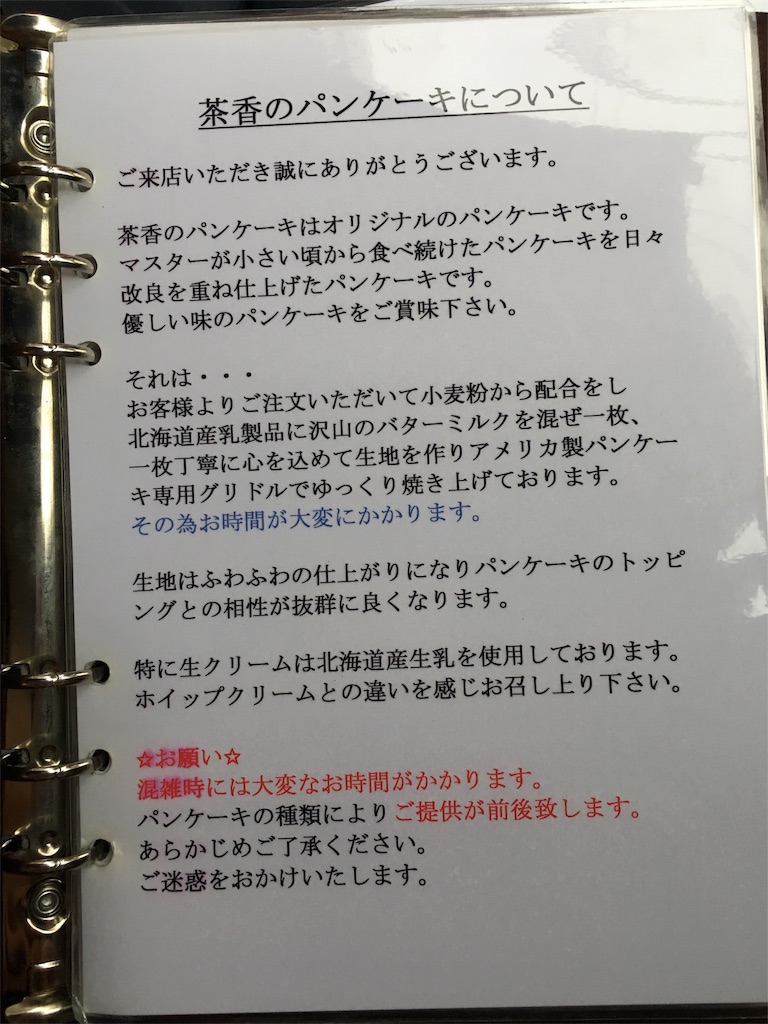 茶香のパンケーキについて
ご来店いただき誠にありがとうございます。
茶香のパンケーキはオリジナルのパンケーキです。
マスターが小さい頃から食べ続けたパンケーキを日々
改良を重ね仕上げたパンケーキです。
優しい味のパンケーキをご賞味下さい。
それは・・・
お客様よりご注文いただいて小麦粉から配合をし
北海道産乳製品に沢山のバターミルクを混ぜ一枚、
一枚丁寧に心を込めて生地を作りアメリカ製パンケー
キ専用グリドルでゆっくり焼き上げております。
その為お時間が大変にかかります。
生地はふわふわの仕上がりになりパンケーキのトッピ
ングとの相性が抜群に良くなります。
特に生クリームは北海道産生乳を使用しております。
ホイップクリームとの違いを感じお召し上り下さい。
☆お願い☆
混雑時には大変なお時間がかかります。
パンケーキの種類によりご提供が前後致します。
あらかじめご了承ください。
ご迷惑をおかけいたします。